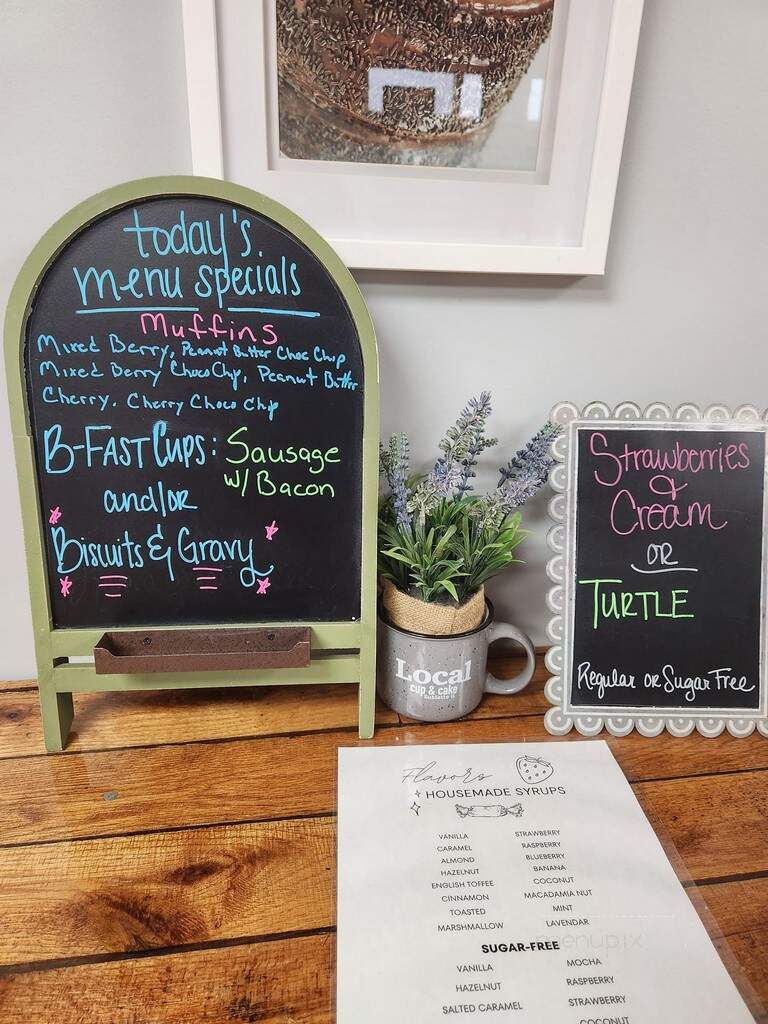 today's
menu specials
Muffins
Mixed Berry, Peanut Butter Choc Chip
Mixed Berry Choco Chip, Peanut Butter
Cherry, Cherry Choco Chip
B-Fast Cups: Sausage
w/ Bacon
and/or
Biscuits & Gravy
Local
cup & cake
Strawberries
&
Cream
or
Turtle
Regular or Sugar Free
Flavors
HOUSEMADE SYRUPS
VANILLA STRAWBERRY
CARAMEL RASPBERRY
ALMOND BLUEBERRY
HAZELNUT BANANA
ENGLISH TOFFEE COCONUT
CINNAMON MACADAMIA NUT
TOASTED MINT
MARSHMALLOW LAVENDAR
menupix
SUGAR-FREE
VANILLA MOCHA
HAZELNUT RASPBERRY
SALTED CARAMEL STRAWBERRY
COCONUT